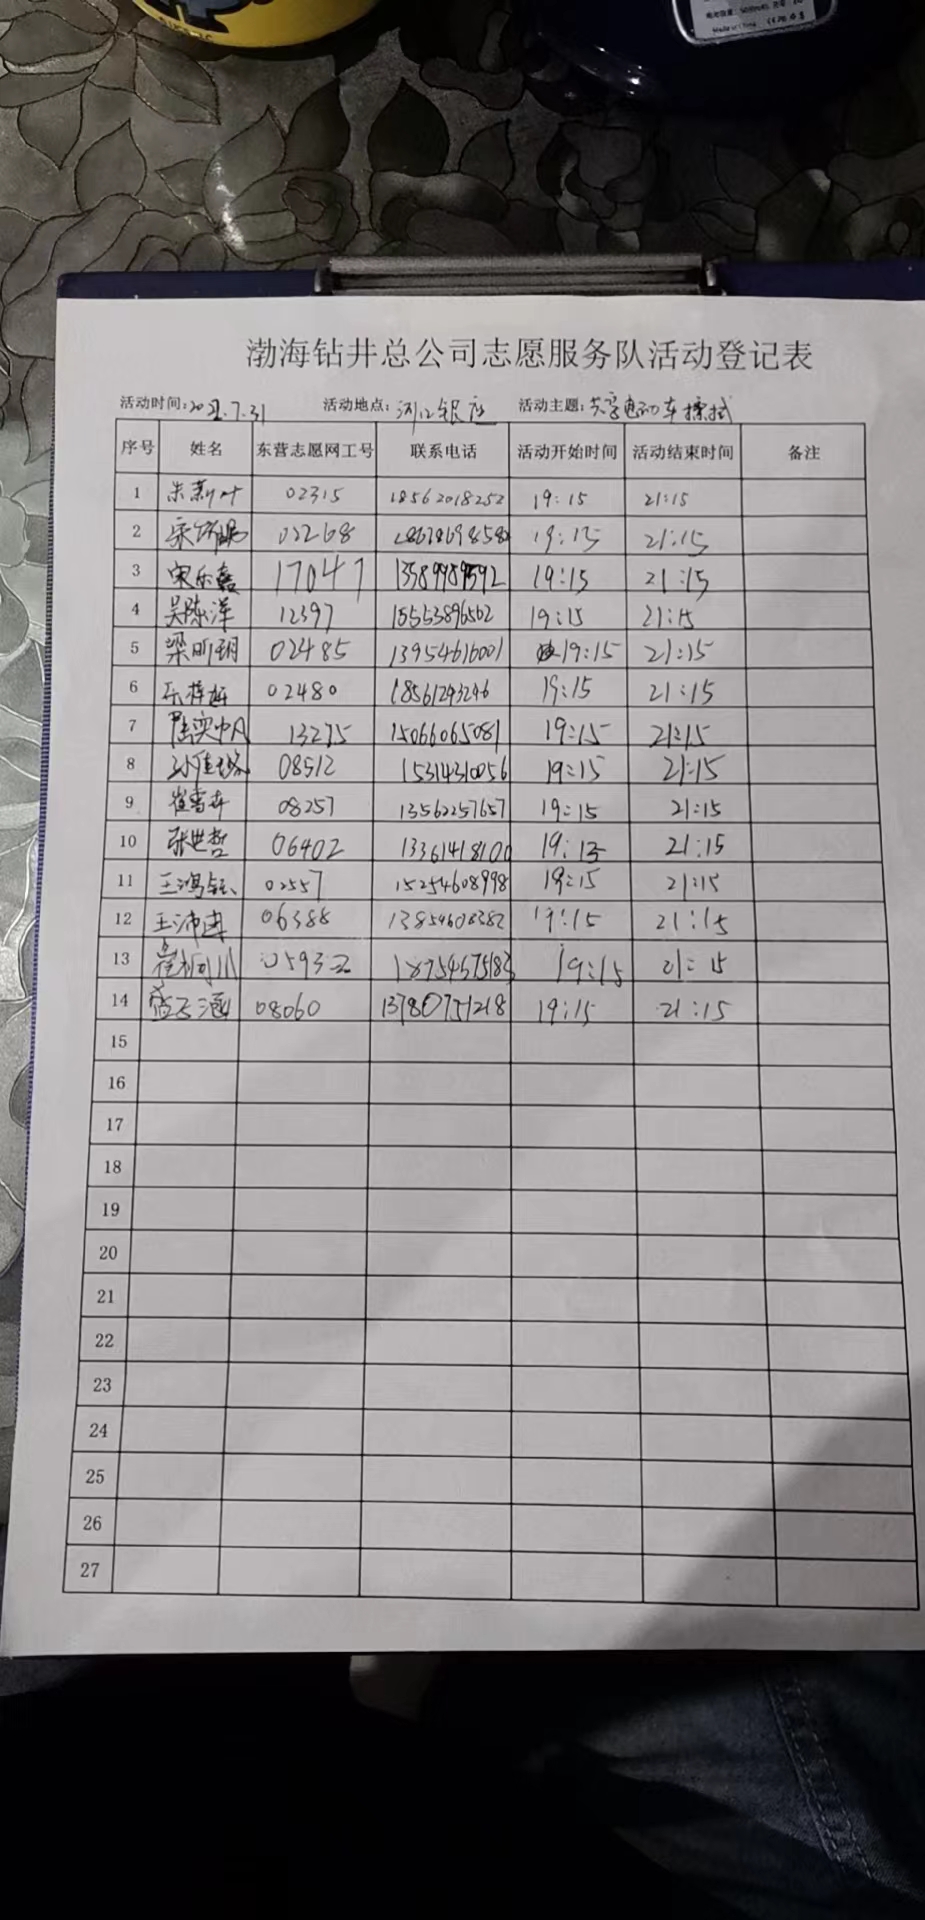 渤海钻井总公司志愿服务队活动登记表
活动时间: 7.31 活动地点: 河口银座 活动主题: 共享电动车擦拭
序号 姓名 东营志愿网工号 联系电话 活动开始时间 活动结束时间 备注
1 朱新叶 02315 18562018252 19:15 21:15
2 02268 19:15 21:15
3 宋乐鑫 17047 19:15 21:15
4 吴陈洋 12397 15553896502 19:15 21:15
5 梁昕玥 02485 13954616001 19:15 21:15
6 02480 18561293296 19:15 21:15
7 13275 15066065081 19:15 21:15
8 08512 15314310056 19:15 21:15
9 崔雪卉 08257 13562257657 19:15 21:15
10 张世哲 06402 13361418100 19:15 21:15
11 王鸿钰 02557 15254608998 19:15 21:15
12 王沛冉 06388 13854608382 19:15 21:15
13 崔桐川 05932 19:15 21:15
14 盛子涵 08060 13780751218 19:15 21:15
15
16
17
18
19
20
21
22
23
24
25
26
27